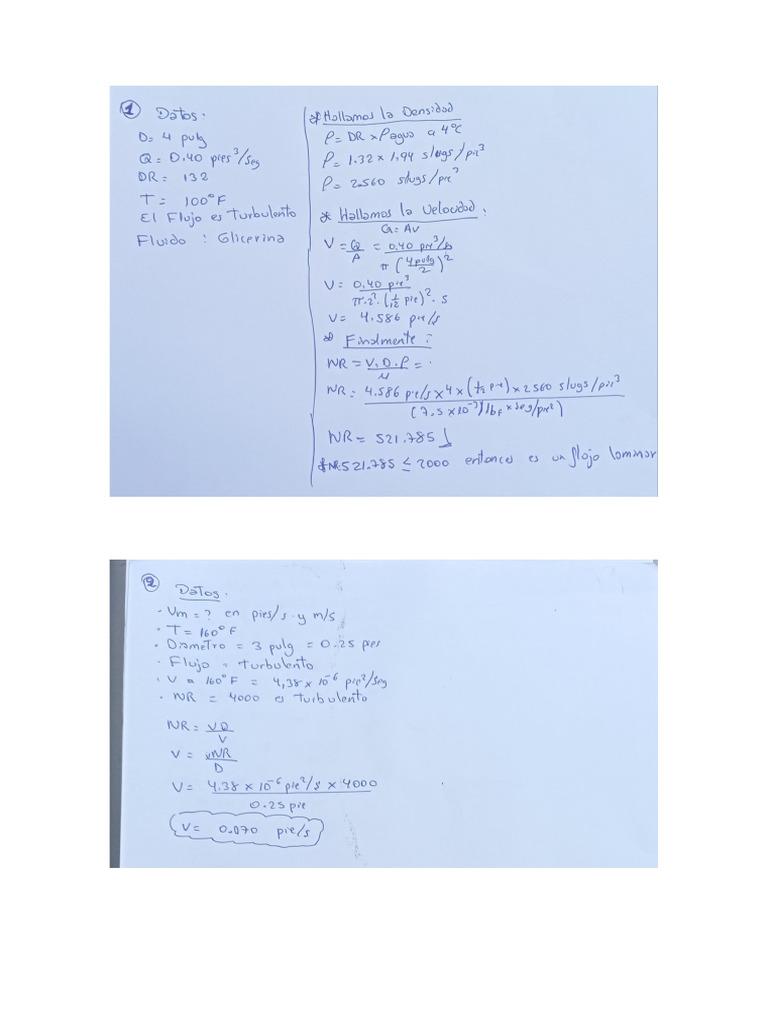 1 Datos:
D= 4 pulg
Q= 0.40 pies³/seg
DR= 132
T= 100°F
El Flujo es Turbulento
Fluido : Glicerina
* Hallamos la Densidad
ρ= DR x ρagua a 4°C
ρ= 1.32 x 1.94 slugs/pie³
ρ= 2.560 slugs/pie³
* Hallamos la Velocidad :
Q= AV
V= Q/A = 0.40 pie³/s / π (4pulg/2)²
V= 0.40 pie³ / π.2².(1/12 pie)².s
V= 4.586 pie/s
* Finalmente :
NR = V.D.ρ/μ =
NR= 4.586 pie/s x 4 x (1/12 pie) x 2560 slugs/pie³ / (7.5 x 10⁻³) lbF x seg/pie²)
NR= 521.785
*NR 521.785 ≤ 2000 entonces es un flojo laminar
2 Datos.
· Vm = ? en pies/s y m/s
· T= 160°F
· Diametro = 3 pulg = 0.25 pies
· Flujo = Turbulento
· V a 160°F = 4,38 x 10⁻⁶ pie²/seg
· NR = 4000 es turbulento
NR = VD/V
V = vNR/D
V= 4.38 x 10⁻⁶ pie²/s x 4000 / 0.25 pie
V= 0.070 pie/s